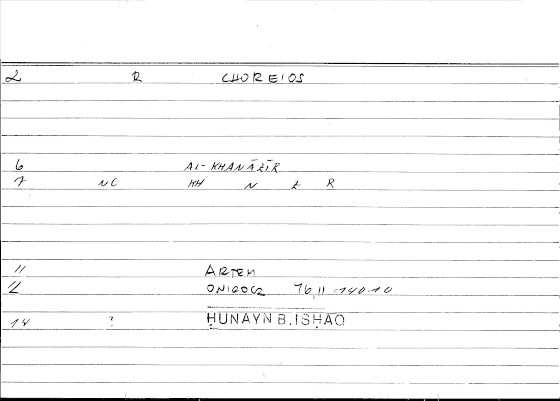 2 R CHOREIOS
6 AL-KHANĀZĪR
7 NC KH N Z R
11 ARTEM
12 ONIROCR 76,11-140.10
14 ? ḤUNAYN B. ISḤĀQ